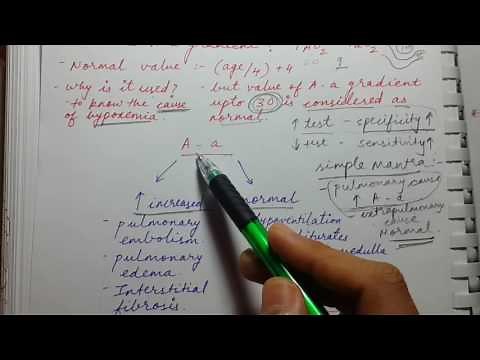 A-a gradient : PAO2 - aO2
- Normal value :- (age/4) + 4
- why is it used? - but value of A-a gradient
- to know the cause upto 30 is considered as
of hypoxemia. normal.
↑ test - specificity ↑
↓ test - sensitivity ↑
simple mantra:-
pulmonary cause
↑ A-a
extrapulmonary
cause
Normal
A - a
↑ increased normal
- pulmonary
embolism
- pulmonary
edema
- Interstitial
fibrosis.
medulla